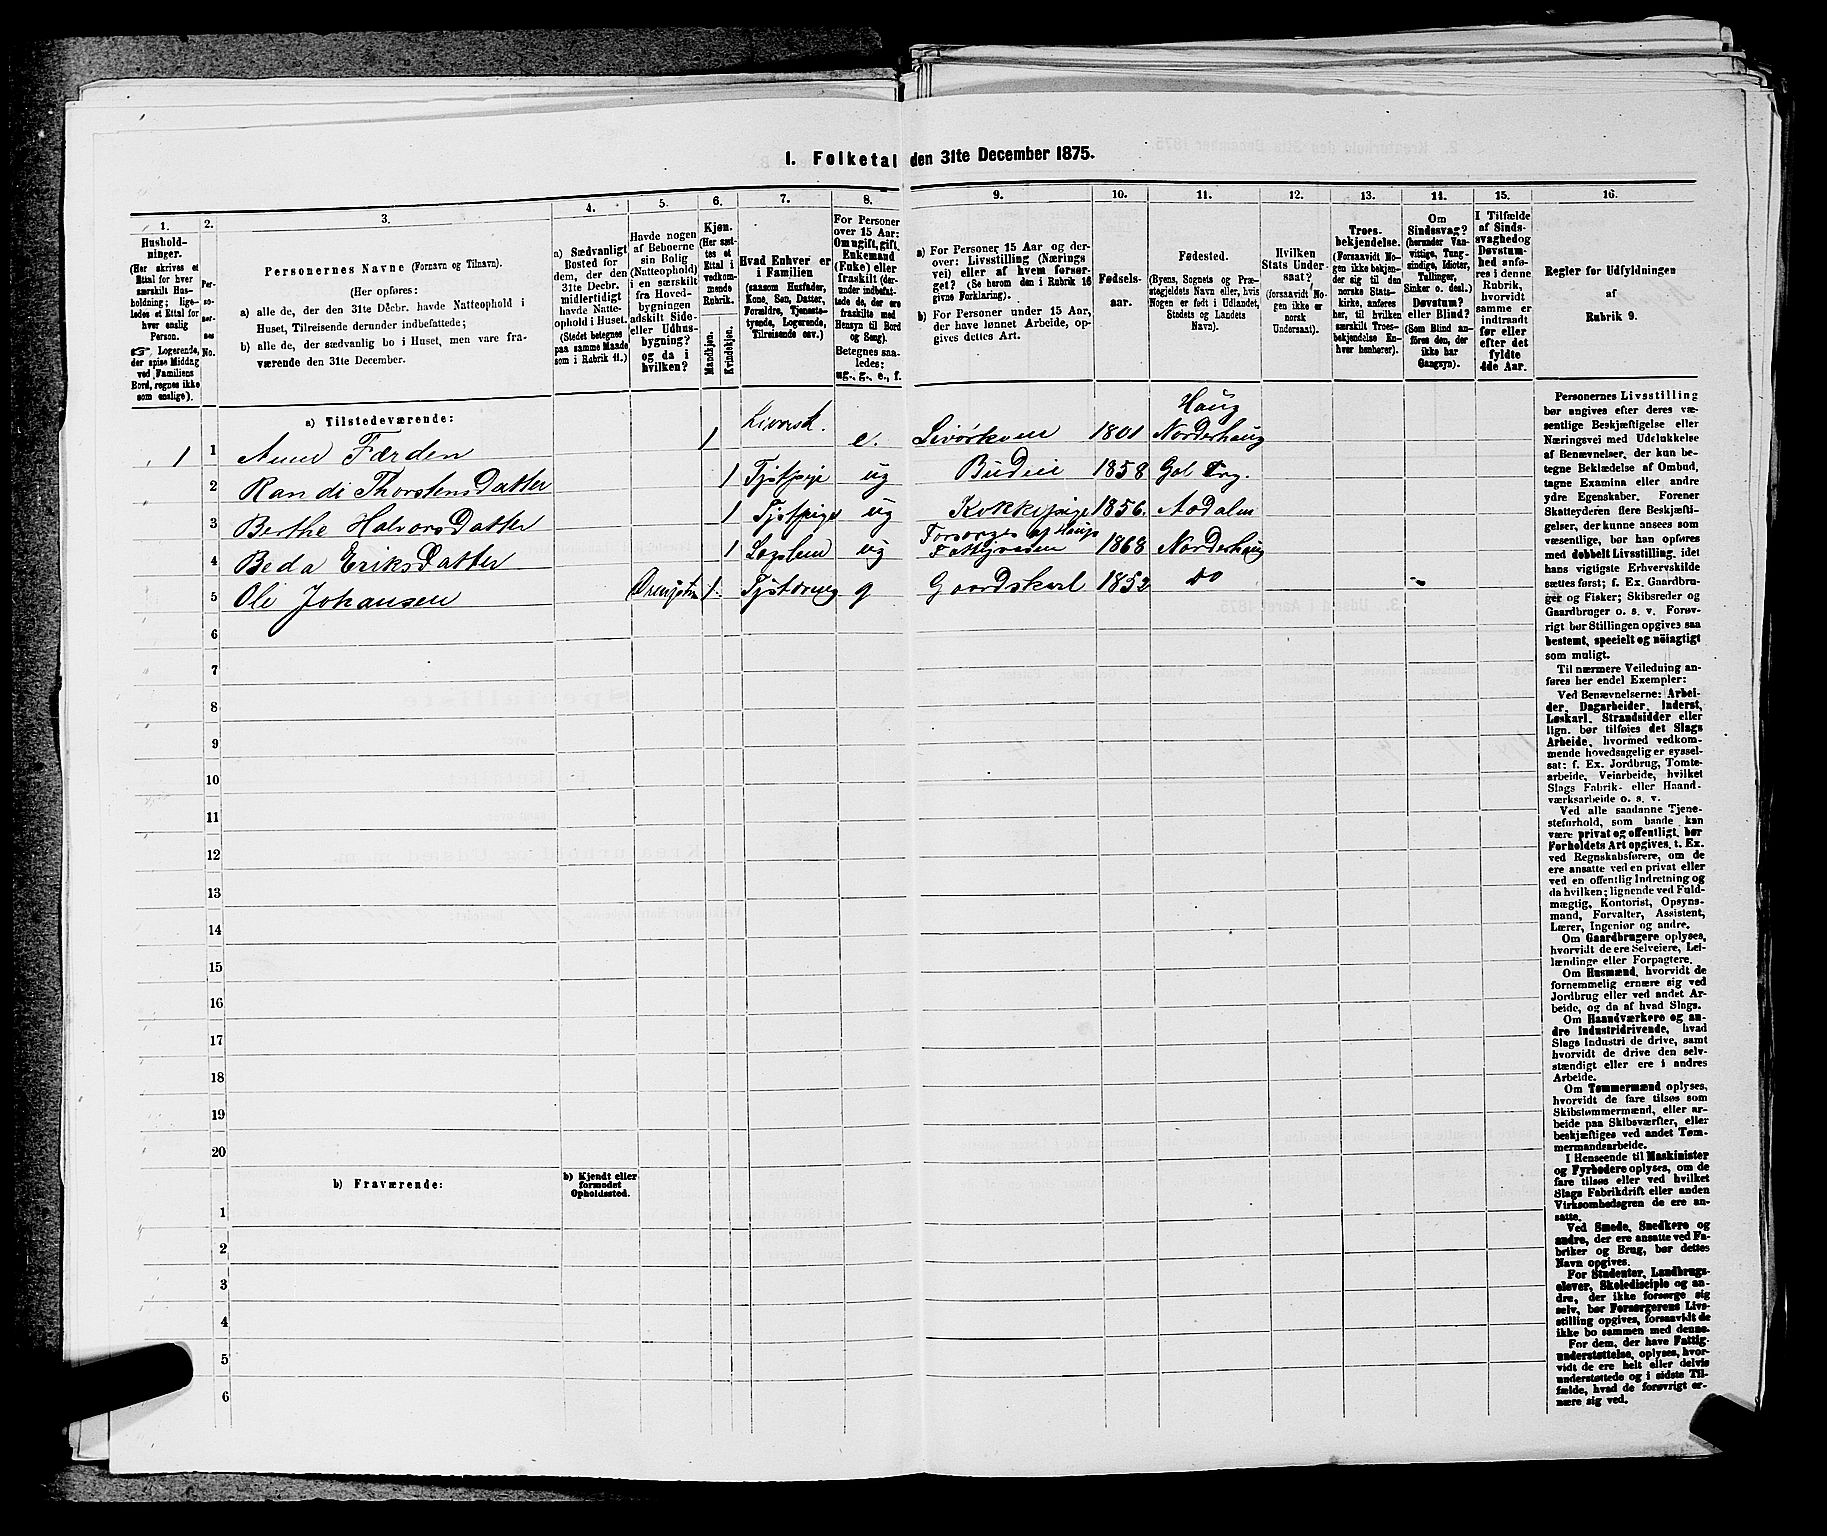 I. Folketal den 31te December 1875.
1.
Husholdninger.
(Her skrives et
Ettal for hver
særskilt Husholdning; ligeledes et Ettal for
hver enslig
Person.
Logerende,
der spise Middag
ved Familiens
Bord, regnes ikke
som enslige).
2.
Personernes
No.
3.
Personernes Navne (Fornavn og Tilnavn).
(Her opføres:
a) alle de, der den 31te Decbr. havde Natteophold i
Huset, Tilreisende derunder indbefattede;
b) alle de, der sædvanlig bo i Huset, men vare fraværende den 31te December.
4.
a) Sædvanligt
Bosted for
dem, der den
31te Decbr.
midlertidigt
havde Natteophold i Huset.
(Stedet betegnes
paa samme Maade
som i Rubrik 11.)
5.
Havde nogen
af Beboerne
sin Bolig
(Natteophold)
i en særskilt
fra Hovedbygningen
adskilt Side-
eller Udhusbygning?
og da i
hvilken?
6.
Kjøn.
(Her sættes et
Ettal i
vedkommende
Rubrik.
Mandkjøn.
Kvindekjøn.
7.
Hvad Enhver er
i Familien
(saasom Husfader,
Kone, Søn, Datter,
Forældre, Tjenestetyende, Logerende,
Tilreisende osv.)
8.
For Personer
over 15 Aar:
Om ugift, gift,
Enkemand
(Enke) eller
fraskilt (derunder indbefattede de, der ere
fraskilte med
Hensyn til Bord
og Seng).
Betegnes saaledes:
ug., g., e., f.
9.
a) For Personer 15 Aar og derover: Livsstilling (Næringsvei) eller af hvem forsørget? (Se herom den i Rubrik 16
givne Forklaring).
b) For Personer under 15 Aar,
der have lønnet Arbeide, opgives dettes Art.
10.
Fødselsaar.
11.
Fødested.
(Byens, Sognets og Præstegjeldets Navn eller, hvis
Nogen er født i Udlandet,
Stedets og Landets
Navn).
12.
Hvilken
Stats Undersaat?
(forsaavidt Nogen ikke er
norsk
Undersaat).
13.
Troesbekjendelse.
(Forsaavidt Nogen ikke bekjender sig til den
norske Statskirke, anføres
her, til hvilken
særskilt Troesbekjendelse Enhver henhører).
14.
Om
Sindssvag?
(herunder Vanvittige, Tungsindige, Idioter,
Tullinger,
Sinker o. desl.)
Døvstum?
eller Blind?
(Som Blind anføres den, der
ikke har
Gangsyn).
15.
I Tilfælde
af Sindssvaghed og
Døvstumhed anføres i denne
Rubrik,
hvorvidt
samme er
indtraadt
før eller
efter det
fyldte
4de Aar.
16.
Regler for Udfyldningen
af
Rubrik 9.
a) Tilstedeværende:
1 1 Anne Færden 1 e. Livørkone 1801 Haug Norderhaug
2 Randi Thorstensdatter 1 Tjstpige ug Budeie 1858 Gol
3 Berthe Halvorsdatter 1 Tjstpige ug Kokkepige 1856. Aadalen
4 Beda Eriksdatter 1 Logslem ug Forsørges af Haugs Fattigvæsen 1868 Norderhaug
5 Ole Johansen 1. g Gaardskarl 1852 do
6
7
8
9
10
11
12
13
14
15
16
17
18
19
20
b) Fraværende:
b) Kjendt eller
formodet
Opholdssted.
1
2
3
4
5
6
Personernes Livsstilling
bør angives efter deres væsentlige Beskjæftigelse eller
Næringsvei med Udelukkelse
af Benævnelser, der kun betegne Beklædelse af Ombud,
tagne Examina eller andre
ydre Egenskaber. Forener
Skatteyderen flere Beskjæftigelser, der kunne ansees som
væsentlige, bør han opføres
med dobbelt Livsstilling, idet
hans vigtigste Erhvervskilde
sættes først; f. Ex. Gaardbruger og Fisker; Skibsreder og
Gaardbruger o. s. v. Forøvrigt bør Stillingen opgives saa
bestemt, specielt og nöiagtigt
som muligt.
Til nærmere Veiledning anføres her endel Exempler:
Ved Benævnelserne: Arbeider, Dagarbeider, Inderst,
Løskarl, Strandsidder eller
lign. bør tilføies det Slags
Arbeide, hvormed vedkommende hovedsagelig er sysselsat: f. Ex. Jordbrug, Tomtearbeide, Veiarbeide, hvilket
Slags Fabrik- eller Haandværksarbeide o. s. v.
Ved alle saadanne Tjenesteforhold, som baade kan
være privat og offentligt, bør
Forholdets Art opgives, t. Ex.
ved Regnskabsførere, om de
ere ansatte ved en privat eller
ved en offentlig Indretning og
da hvilken; lignende ved Fuldmægtig, Kontorist, Opsynsmand, Forvalter, Assistent,
Lærer, Ingeniør og andre.
Om Gaardbrugere oplyses,
hvorvidt de ere Selveiere, Leilændinge eller Forpagtere.
Om Husmænd, hvorvidt de
fornemmelig ernære sig ved
Jordbrug eller ved andet Arbeide, og da af hvad Slags.
Om Haandværkere og andre Industridrivende, hvad
Slags Industri de drive, samt
hvorvidt de drive den selvstændigt eller ere i andres
Arbeide.
Om Tømmermænd oplyses,
hvorvidt de fare tilsøs som
Skibstømmermænd, eller arbeide paa Skibsværfter, eller
beskjæftiges ved andet Tømmermandsarbeide.
I Henseende til Maskinister
og Fyrbødere oplyses, om de
fare tilsøs eller ved hvilket
Slags Fabrikdrift eller anden
Virksomhedsgren de ere ansatte.
Ved Smede, Snedkere og
andre, der ere ansatte ved Fabriker og Brug, bør dettes
Navn opgives.
For Studenter, Landbrugselever, Skoledisciple og andre, der ikke forsørge sig
selv, bør Forsørgerens Livsstilling opgives, forsaavidt de
ikke bo sammen med denne.
For dem, der have Fattigunderstøttelse, oplyses, hvorvidt de ere helt eller delvis
understøttede og i sidste Tilfælde, hvad de forøvrigt ernære sig ved.